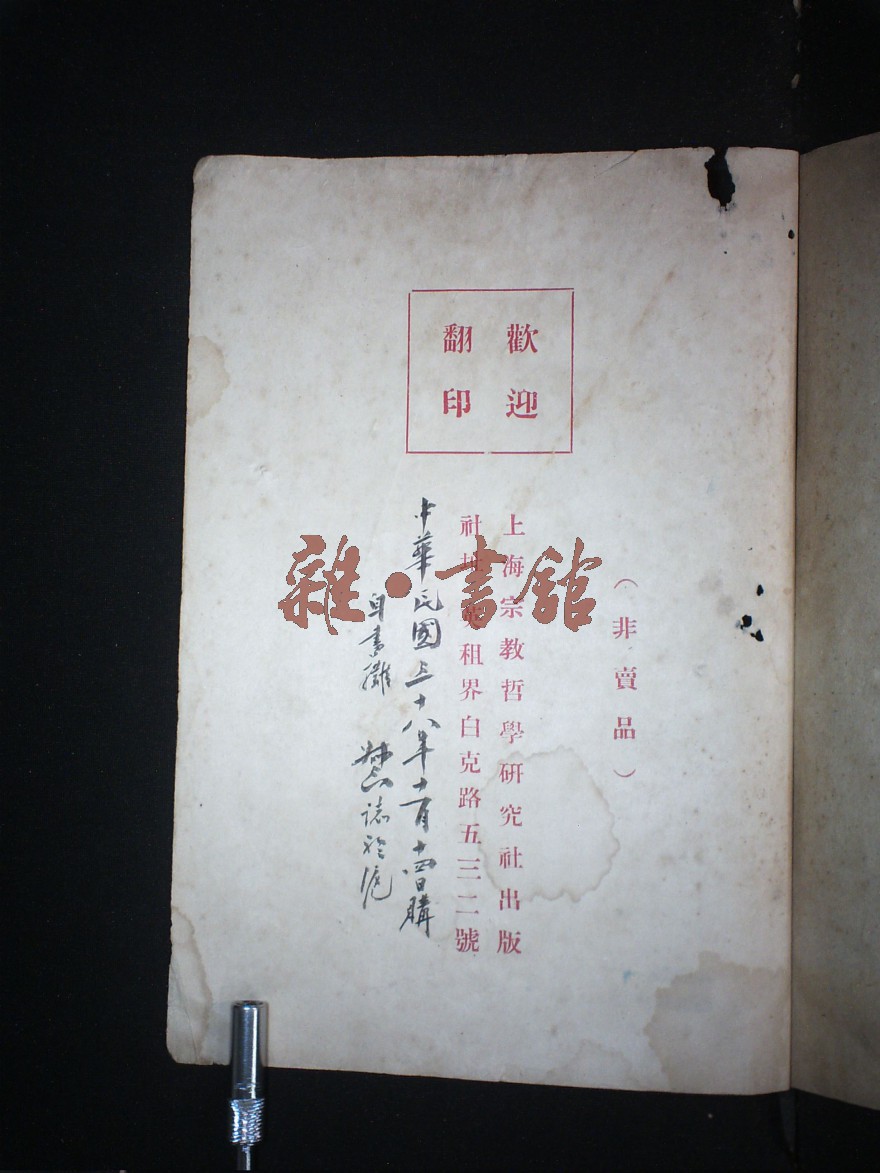 歡迎
翻印
（非賣品）
上海宗教哲學研究社出版
社址英租界白克路五三二號
中華民國三十八年十一月十四日購
自書攤
誌於滬
雜·書館